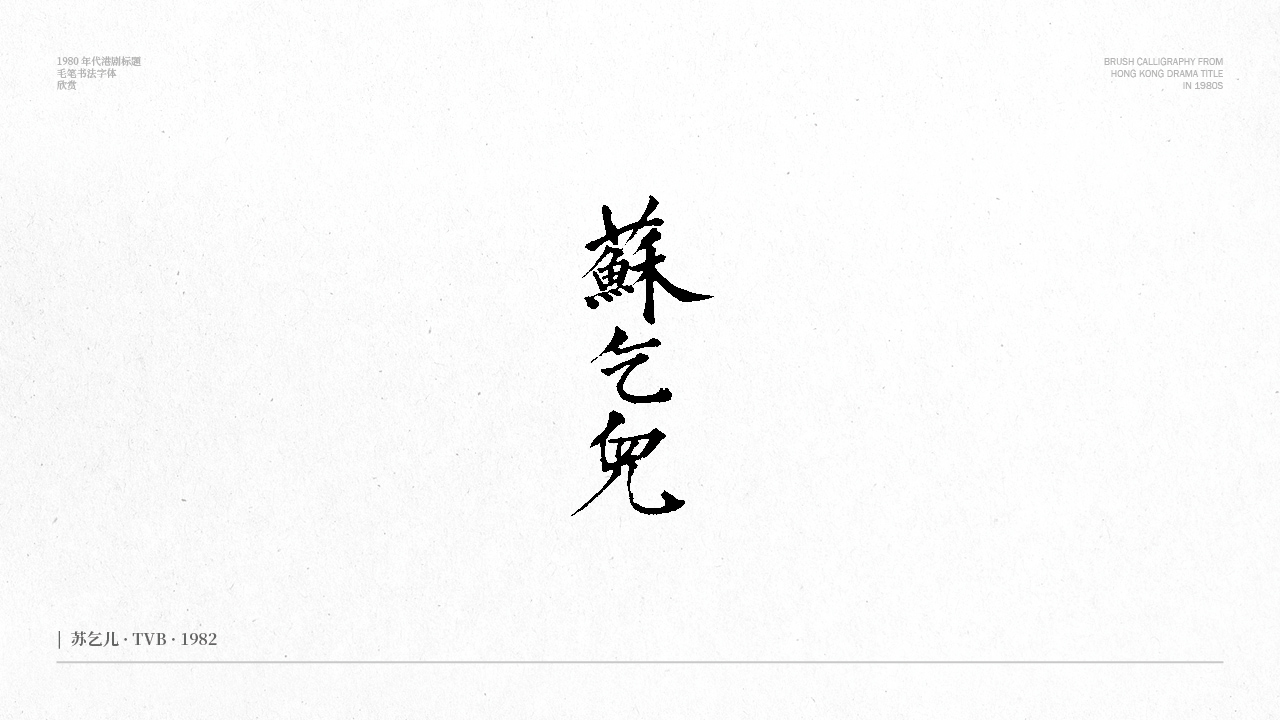 1980 年代港剧标题
毛笔书法字体
欣赏
BRUSH CALLIGRAPHY FROM
HONG KONG DRAMA TITLE
IN 1980S
蘇乞兒
| 苏乞儿 · TVB · 1982